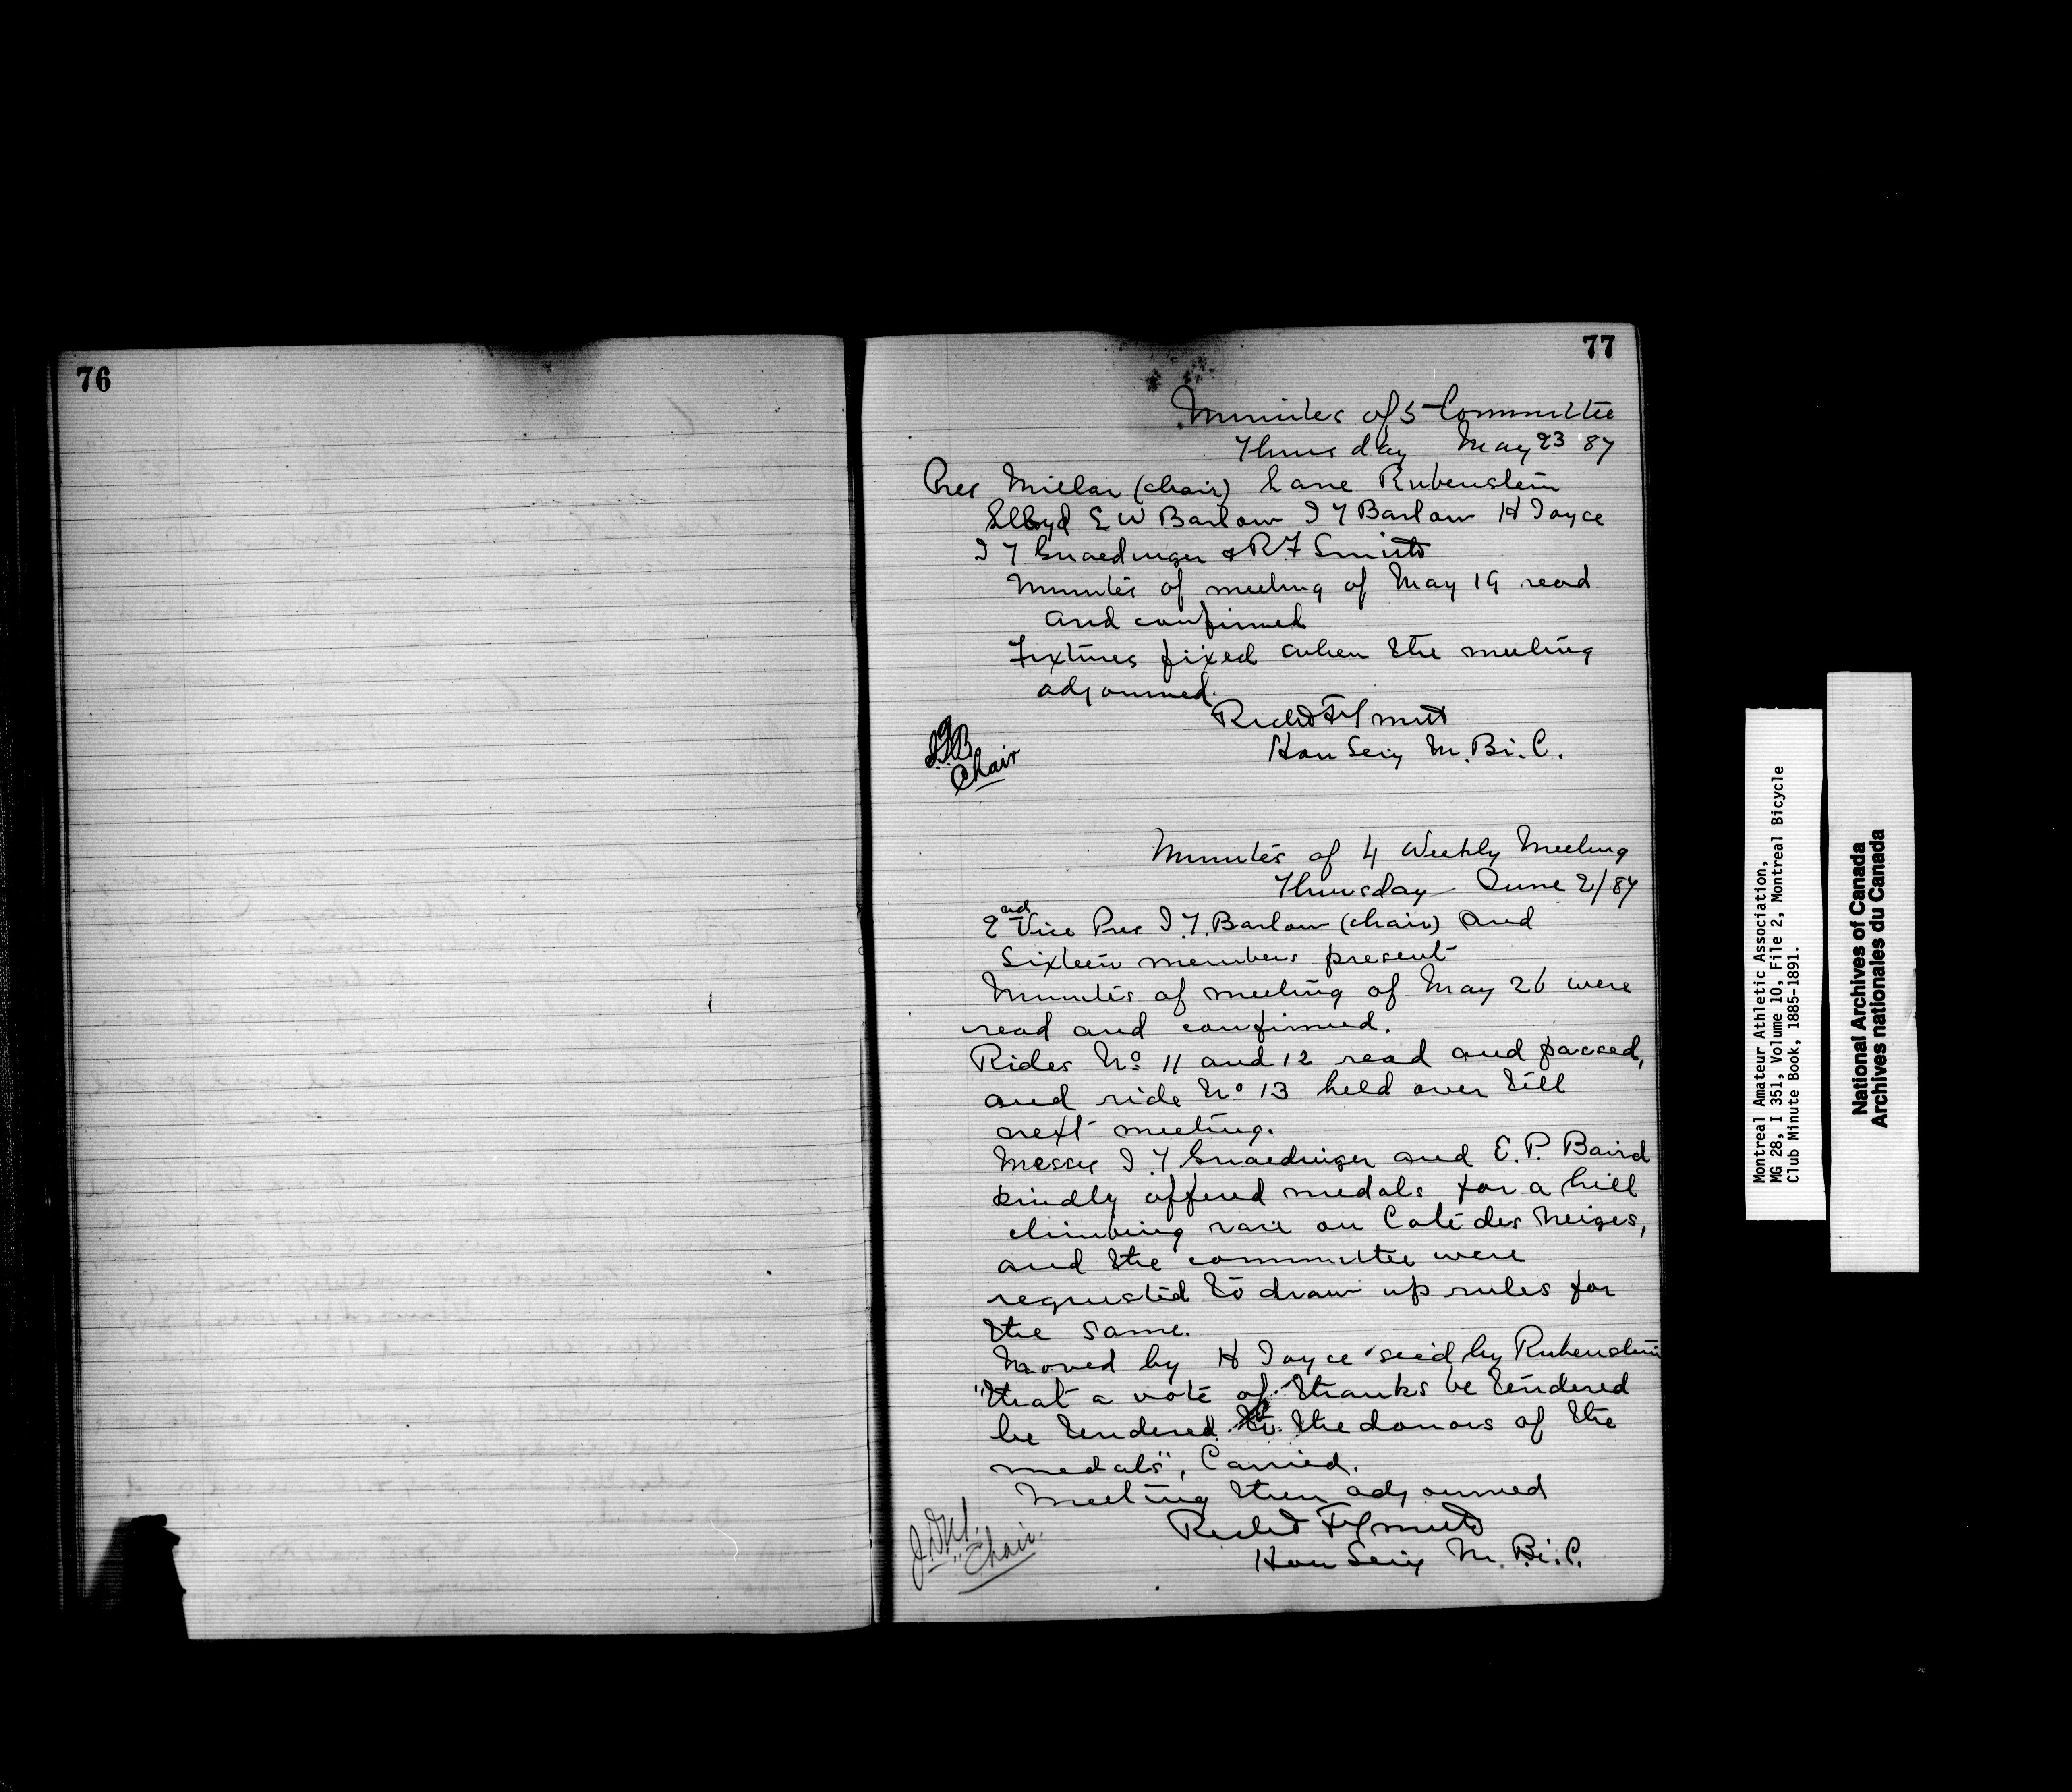 76
77
Minutes of 5 Committee
Thursday May 23 '87
Pres Millar (chair) Lane Rubenstein
Lloyd E W Barlow J T Barlow H Joyce
J T Gnaedinger & R F Smith
Minutes of meeting of May 19 read
and confirmed
Fixtures fixed when the meeting
adjourned.
Richd F Smith
Hon Secy M. Bi. C.
Chair
Minutes of 4 Weekly Meeting
Thursday June 2/87
2nd Vice Pres J. T. Barlow (chair) and
Sixteen members present
Minutes of meeting of May 26 were
read and confirmed.
Rides No 11 and 12 read and passed,
and ride No 13 held over till
next meeting.
Messrs J. T Gnaedinger and E. P. Baird
kindly offered medals for a hill
climbing race on Cote des Neiges,
and the committee were
requested to draw up rules for
the same.
Moved by H Joyce sec'd by Rubenstein
"that a vote of thanks be tendered
be tendered to the donors of the
medals", Carried.
Meeting then adjourned
Richd F Smith
Hon Secy M. Bi. C.
Chair.
Montreal Amateur Athletic Association,
MG 28, I 351, Volume 10, File 2, Montreal Bicycle
Club Minute Book, 1885-1891.
National Archives of Canada
Archives nationales du Canada